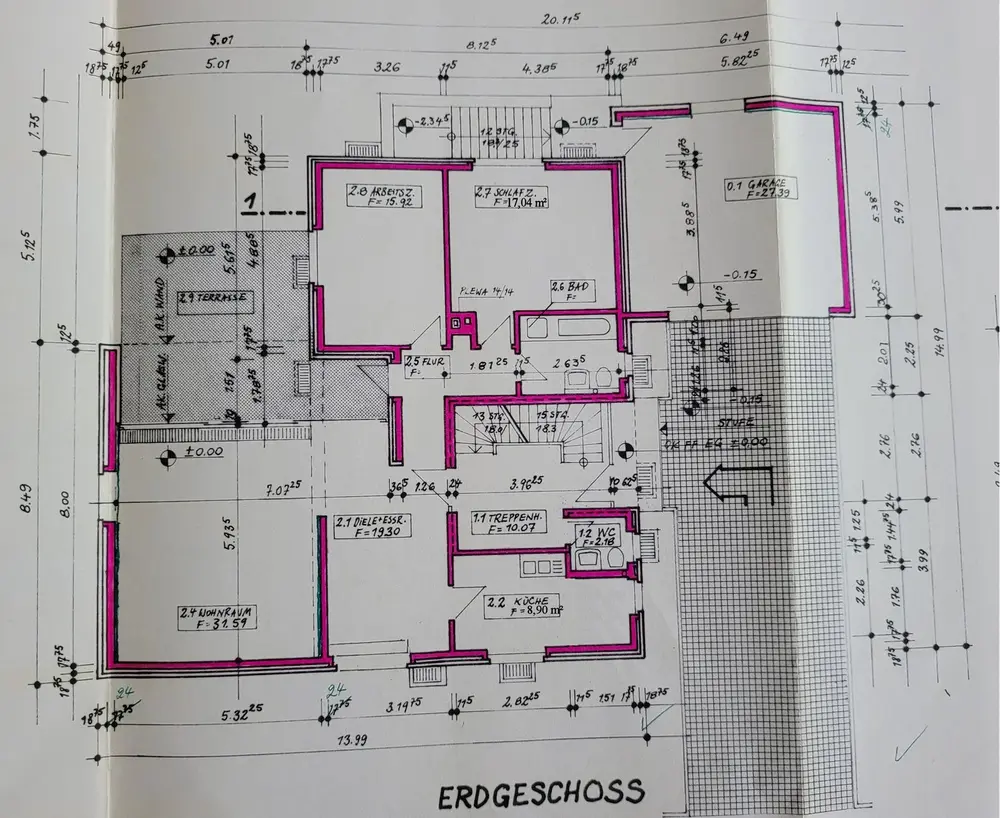 20.11⁵
49
5.01
8.12⁵
6.49
18⁷⁵
17⁷⁵
12⁵
5.01
18⁷⁵
17⁷⁵
3.26
11⁵
4.38⁵
17⁷⁵
18⁷⁵
5.82²⁵
17⁷⁵
12⁵
1.75
-2.34⁵
12 STG.
-0.15
24
2.8 ARBEITSZ.
F= 15.92
2.7 SCHLAFZ.
F=17,04 m²
0.1 GARAGE
F=27.39
1
17⁷⁵
18⁷⁵
3.88⁵
5.38⁵
5.99
5.12⁵
±0.00
5.61⁵
4.88⁵
2.9 TERRASSE
A.K. WAND
PLEWA 14/14
2.6 BAD
F=
-0.15
11⁵
30²⁵
14.99
12⁵
17⁷⁵
1.51
1.78²⁵
2.5 FLUR
F=
1.81²⁵
11⁵
2.63⁵
2.26
2.01
2.25
24
-0.15
STUFE
OK FF EG ±0.00
13 STG.
18.0/
15 STG.
18.3
±0.00
2.76
2.76
8.49
8.00
7.07²⁵
36⁵
1.26
24
3.96²⁵
10
62⁵
24
5.93⁵
2.1 DIELE+ESSR.
F=19.30
1.1 TREPPENH.
F= 10.07
1.2 WC
F=2.18
1.25
11⁵
1.44²⁵
17⁷⁵
3.99
2.26
1.76
2.4 WOHNRAUM
F= 31.59
2.2 KÜCHE
F =8,90 m²
17⁷⁵
18⁷⁵
18⁷⁵
24
18⁷⁵
17⁷⁵
5.32²⁵
24
17⁷⁵
3.19⁷⁵
11⁵
2.82²⁵
11⁵
1.51
17⁷⁵
18⁷⁵
13.99
ERDGESCHOSS